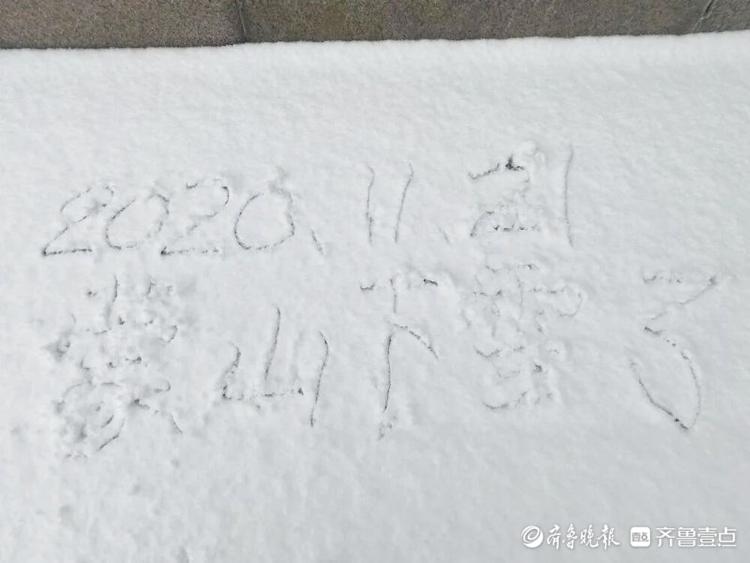 2020、11、21
蒙山下雪了
齐鲁晚报 齐鲁壹点